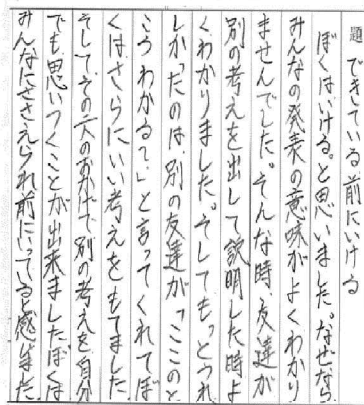 題 できている前にいける
ぼくはいける。と思いました。なぜなら、
みんなの発表の意味がよくわかり
ませんでした。そんな時、友達が
別の考えを出して説明した時よ
くわかりました。そしてもっとうれ
しかったのは、別の友達が「ここのと
こうわかる?」と言ってくれてぼ
くはさらにいい考えをもてました。
そしてその人のおかげで別の考えを自分
でも思いつくことが出来ましたぼくは
みんなにささえられ前にいっていると感じました。